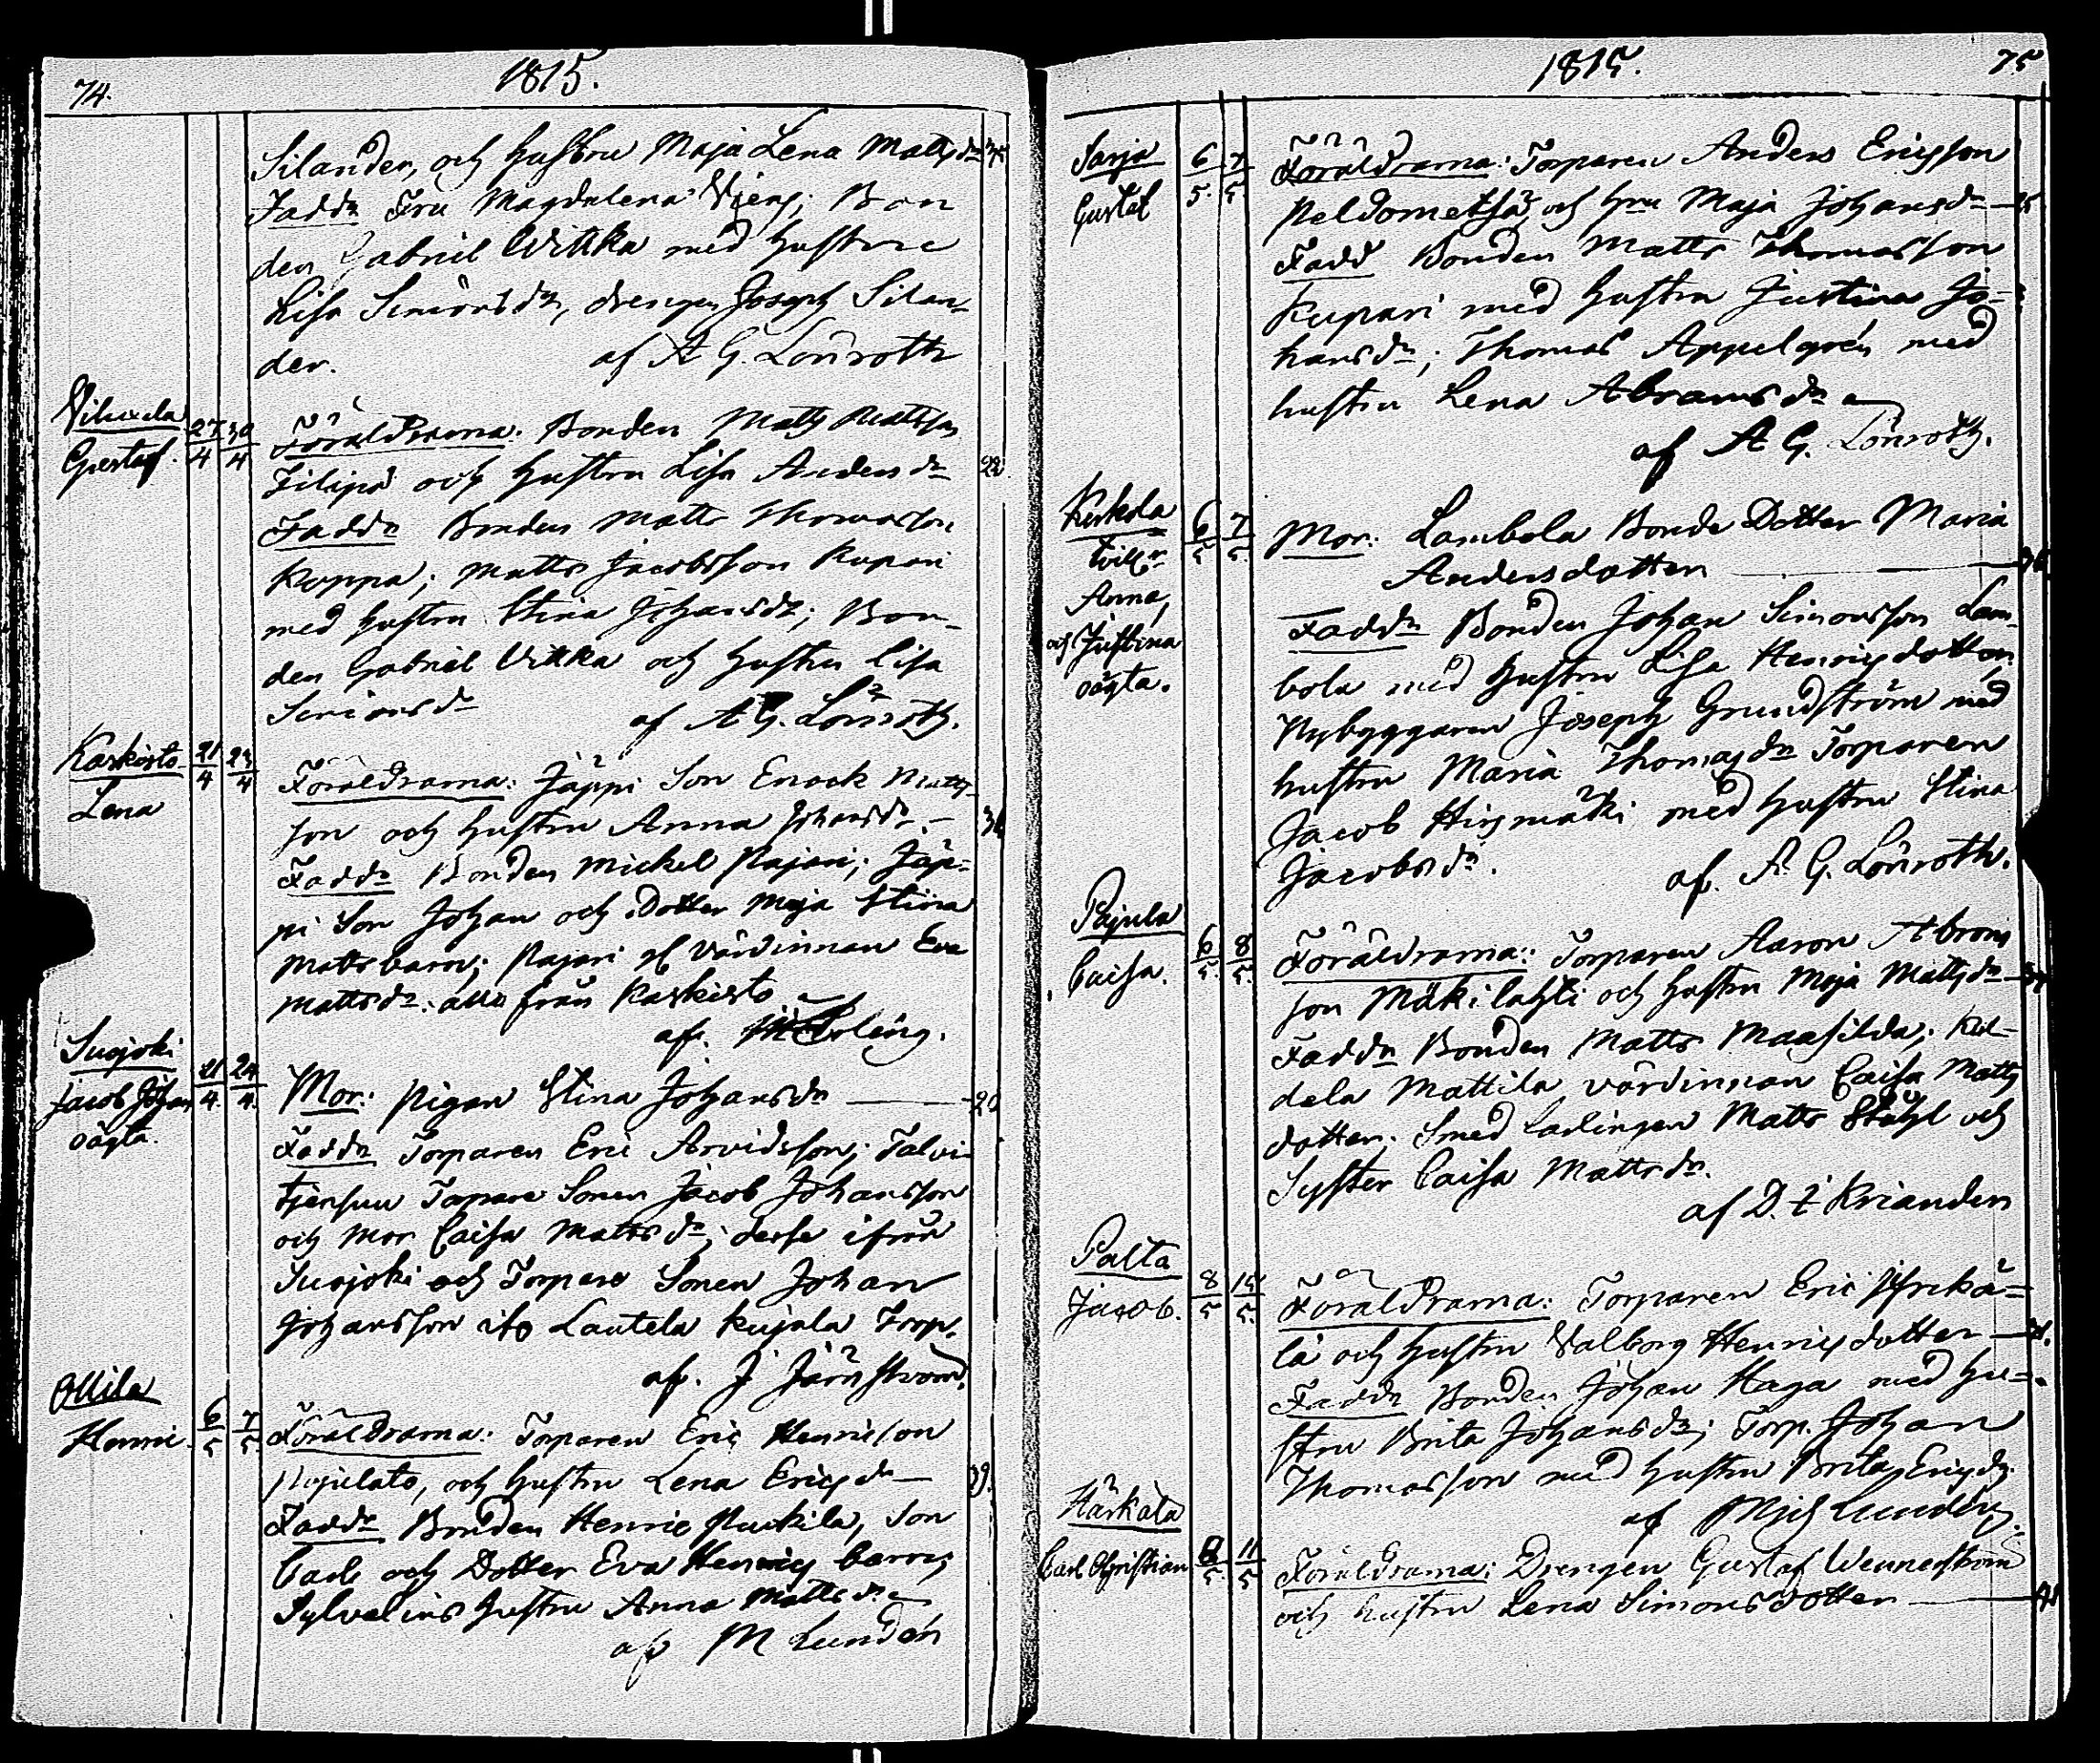 74. 1815.
Silander, och hustru Maja Lena Mattsdr
Faddr Fru Magdalena Bon
den Gabriel Wittka med hustru
Lisa Simonsdr, drengen Joseph Silan
der. af A G. Lönroth
Gustaf. 27/4 30/4 Föräldrarna. Bonden Matts Mattsson
Filipä och hustru Lisa Andersdr 22.
Faddr Bonden Matts Thomasson
Koppa; Matts Jacobsson Kupari
med hustru Stina Johansdr; Bon-
den Gabriel Vittka och hustru Lisa
Simonsdr af A G. Lönroth.
Karkisto 21/4 23/4 Föräldrarna: Jäppi Son Enock Matts-
Lena son och hustru Anna Johansdr.
Faddr Bonden Mickel Pajari; Jäp-
pi Son Johan och Dotter Maja Stina
Mattsbarn; Pajari gl värdinnan Eva
Mattsdr. alla från Karkisto
af.
Suojoki 21/4 24/4 Mor: pigan Stina Johansdr
Jacob Johan
oägta. Faddr Torparen Eric Arvidsson; Talvi-
Torpare Sonen Jacob Johansson
och Mor Caisa Mattsdr; desse ifrån
Suojoki och Torpare Sonen Johan
Johansson Lautela Kujala Torp.
af. J Järnström.
Ollila
Henric. 6/5 7/5 Föräldrarna. Torparen Eric Henricson
och hustru Lena Ericsdr 39.
Faddr Bonden Henric Son
Carl och Dotter Eva Henrics barn;
Sylvelius hustru Anna Mattsdr
af M Lundén
1815. 75
Sarja 6/5 7/5 Föräldrarna: Torparen Anders Ericsson
Gustaf Peldometsä, och hru Maja Johansdr
Fadd Bonden Matts Thomasson
Kupari med hustru Justina Jo-
hansdr; Thomas Appelgrén med
hustru Lena Abramsdr
af A G. Lönroth.
6/5 7/5 Mor: Lambola Bonde Dotter Maria
Andersdotter
Anna,
och Justina
oägta.
Faddr Bonden Johan Simonsson Lam-
bola med hustru Lisa Henricsdotter,
Nybyggaren Joseph Grundström med
hustru Maria Thomasdr Torparen
Jacob Hirsmäki med hustru Stina
Jacobsdr. af. A. G. Lönroth.
Pajula
Caisa. 6/5 8/5 Föräldrarna: Torparen Aaron Abrams
son Mäkilahti och hustru Maja Mattsdr
Faddr Bonden Matts Maasilda; Kul-
dela Mattila värdinnan Caisa Matts
dotter. Smed Lärlingen Matts Ståhl och
Syster Caisa Mattsdr.
af D. Krianden
Palta
Jacob. 8/5 14/5 Föräldrarna: Torparen Eric
lä och hustru Valborg Henricsdotter
Faddr Bonden Johan Haga med hu-
stru Brita Johansdr; Torp. Johan
Thomasson med hustru Brita Ericsdr.
af Mich Lundén
Härkälä
Carl Christian 8/5 11/5 Föräldrarna: Drengen Gustaf Wennerström
och hustru Lena Simonsdotter